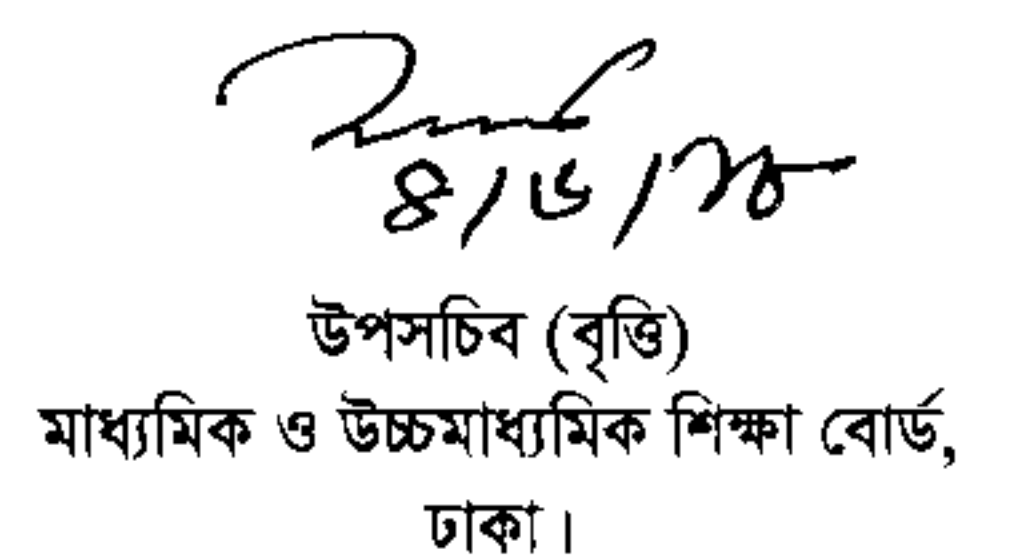 ৪/৬/
উপসচিব (বৃত্তি)
মাধ্যমিক ও উচ্চমাধ্যমিক শিক্ষা বোর্ড,
ঢাকা।